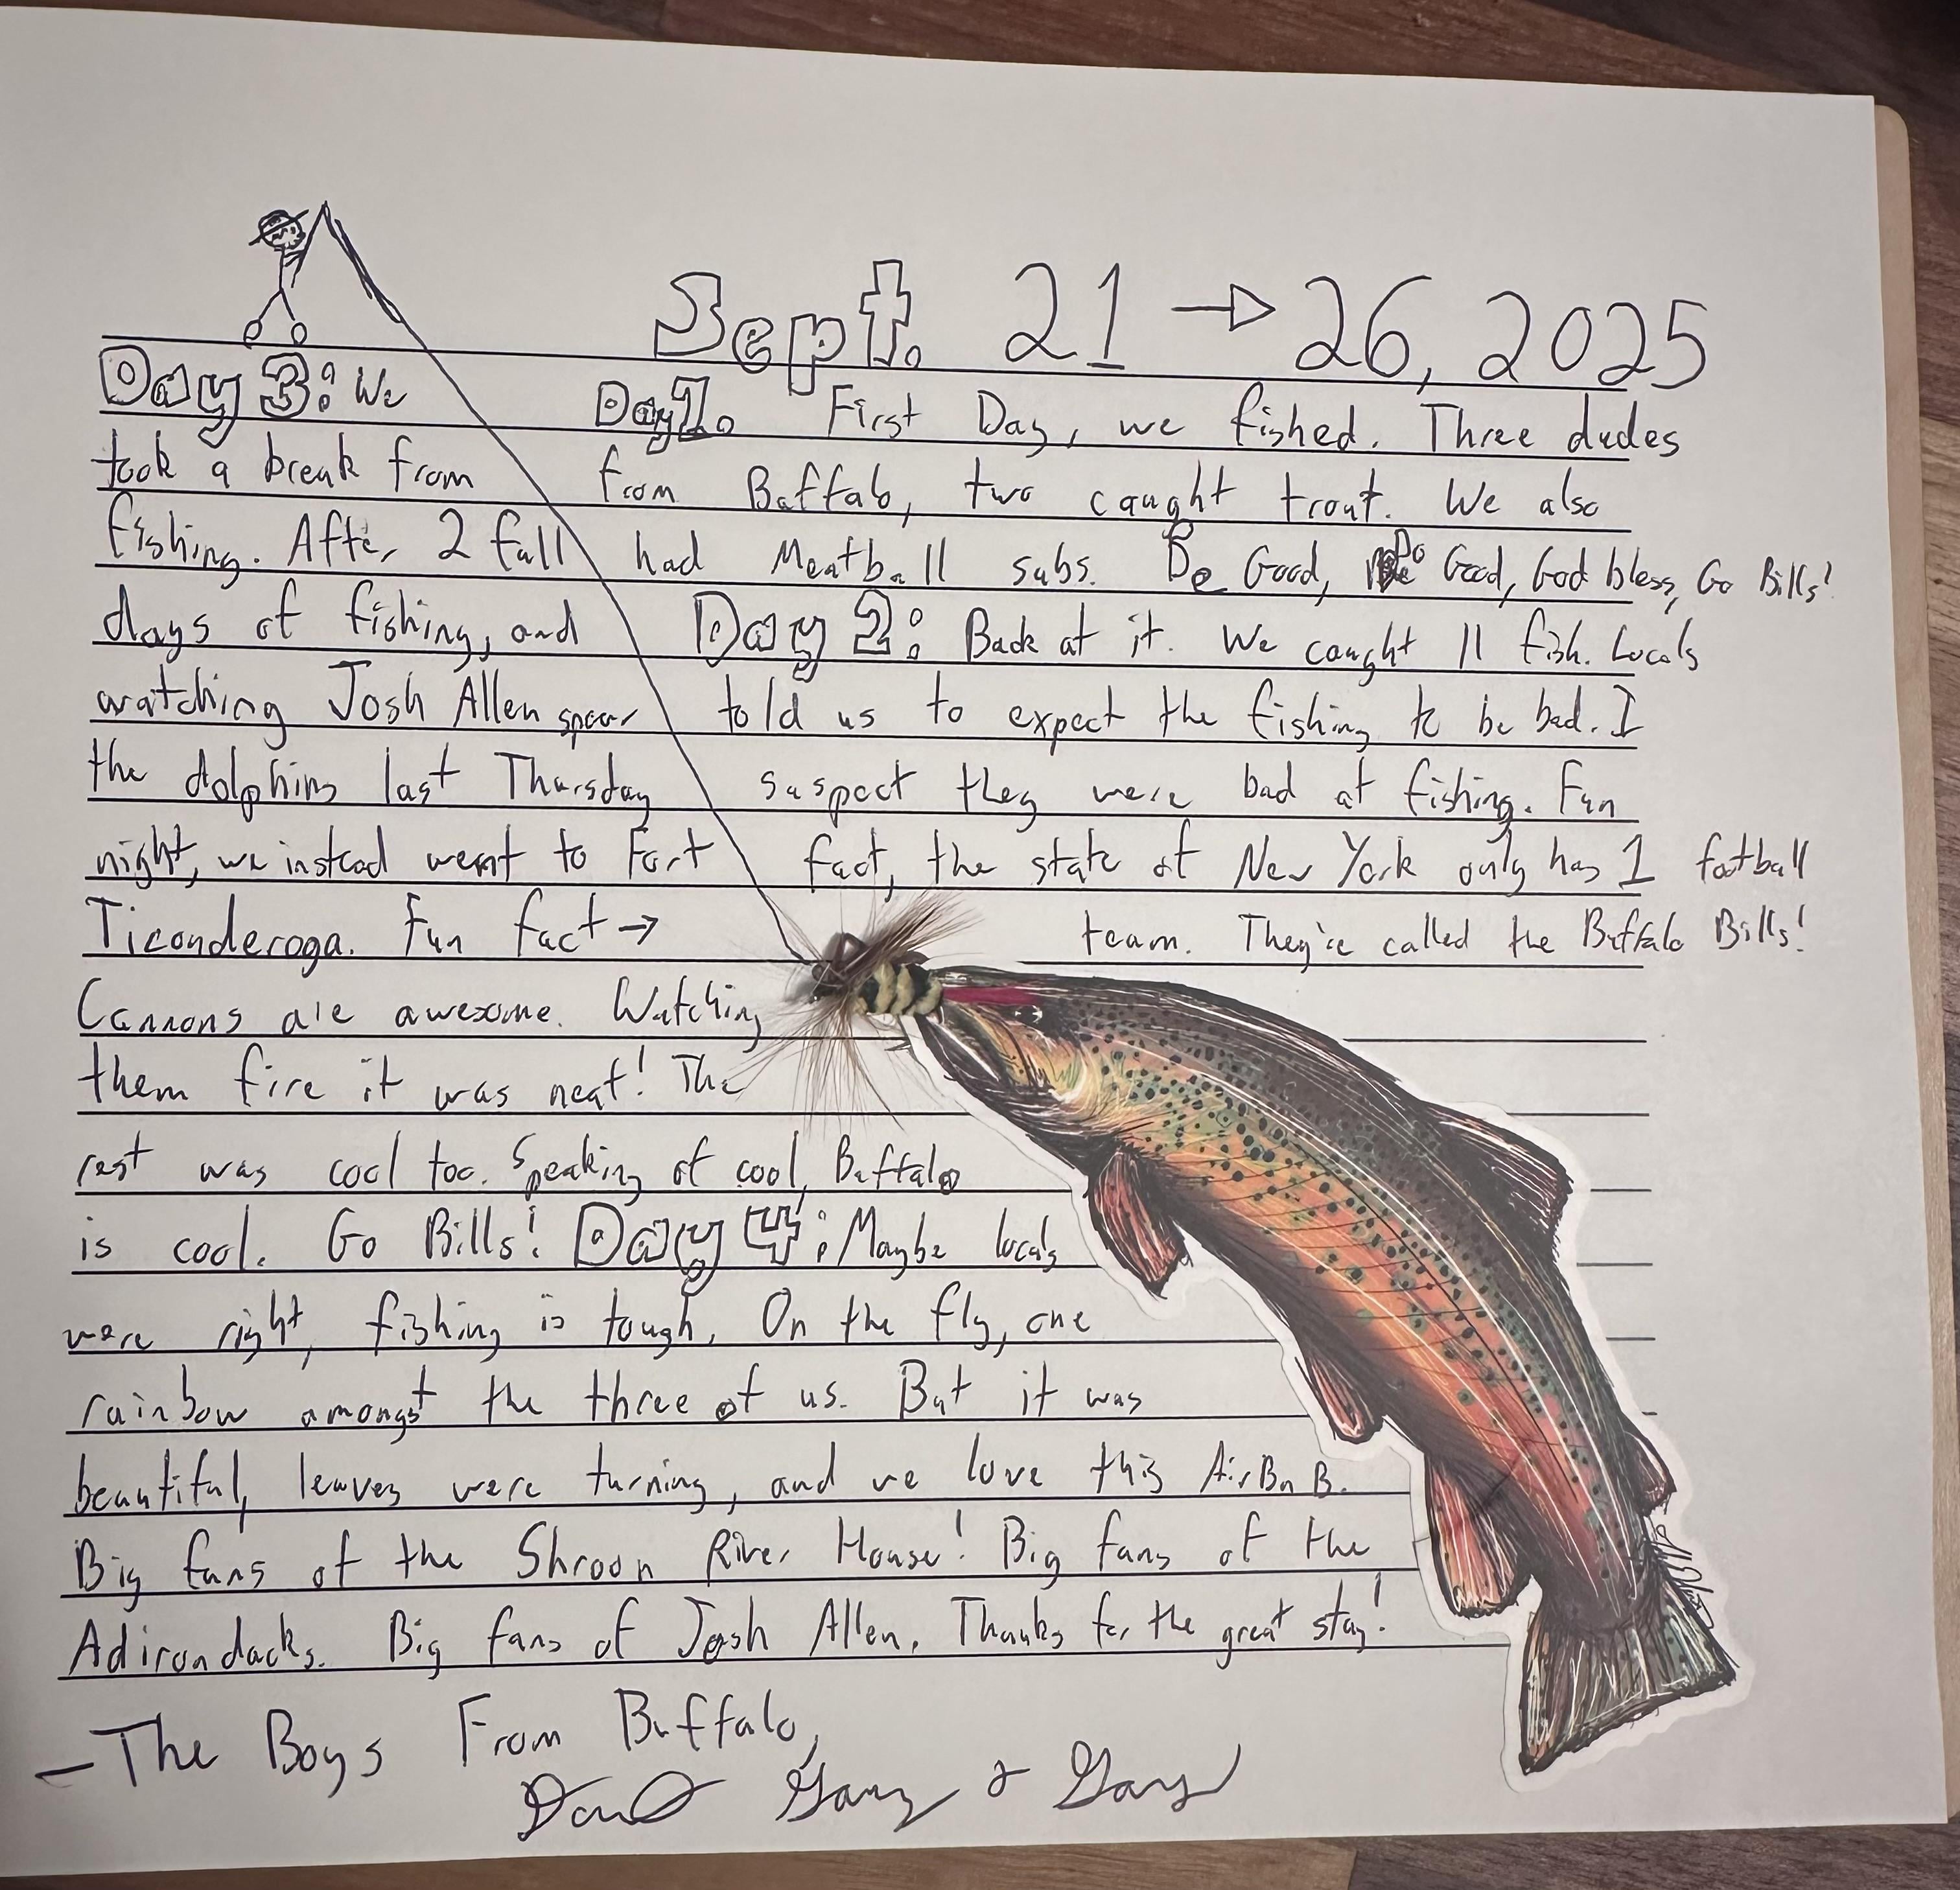 Sept. 21 → 26, 2025
Day 1. First Day, we fished. Three dudes
from Buffalo, two caught trout. We also
had Meatball subs. Be Good, Do Good, God bless, Go Bills!
Day 2: Back at it. We caught 11 fish. Locals
told us to expect the fishing to be bad. I
suspect they were bad at fishing. Fun
fact, the state of New York only has 1 football
team. They're called the Buffalo Bills!
Day 3: We
took a break from
fishing. After 2 full
days of fishing, and
watching Josh Allen spear
the dolphins last Thursday
night, we instead went to Fort
Ticonderoga. Fun fact →
Cannons are awesome. Watching
them fire it was neat! The
rest was cool too. Speaking of cool, Buffalo
is cool. Go Bills! Day 4: Maybe locals
were right, fishing is tough. On the fly, one
rainbow amongst the three of us. But it was
beautiful, leaves were turning, and we love this AirBnB.
Big fans of the Shroon River House! Big fans of the
Adirondacks. Big fans of Josh Allen. Thanks for the great stay!
- The Boys From Buffalo,
Gary & Gary